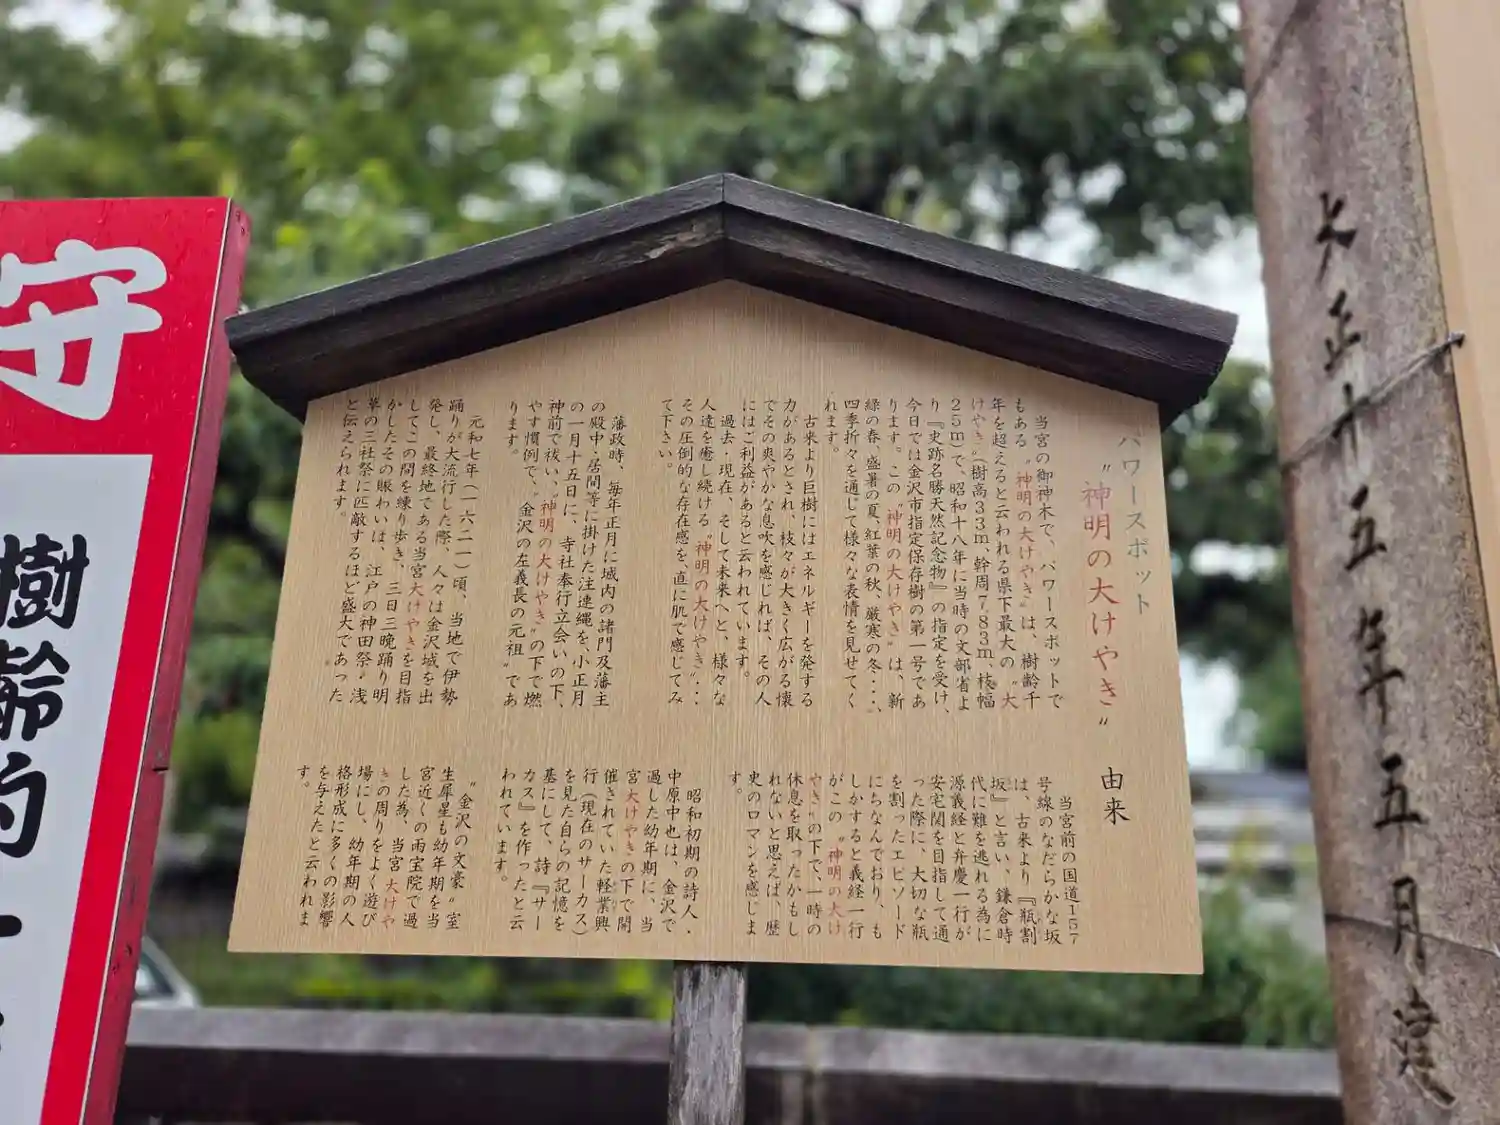 パワースポット
〝神明の大けやき〟 由来
当宮の御神木で、パワースポットで
もある〝神明の大けやき〟は、樹齢千
年を超えると云われる県下最大の〝大
けやき〟(樹高33m、幹周7.83m、枝幅
25m)で、昭和十八年に当時の文部省よ
り『史跡名勝天然記念物』の指定を受け、
今日では金沢市指定保存樹の第一号であ
ります。この〝神明の大けやき〟は、新
緑の春、盛暑の夏、紅葉の秋、厳寒の冬・・・、
四季折々を通じて様々な表情を見せてく
れます。
古来より巨樹にはエネルギーを発する
力があるとされ、枝々が大きく広がる懐
でその爽やかな息吹を感じれば、その人
にはご利益があると云われています。
過去・現在、そして未来へと、様々な
人達を癒し続ける〝神明の大けやき〟・・・
その圧倒的な存在感を、直に肌で感じてみ
て下さい。
藩政時、毎年正月に城内の諸門及藩主
の殿中・居間等に掛けた注連縄を、小正月
の一月十五日に、寺社奉行立会いの下、
神前で祓い、〝神明の大けやき〟の下で燃
やす慣例で、〝金沢の左義長の元祖〟であ
ります。
元和七年(一六二一)頃、当地で伊勢
踊りが大流行した際、人々は金沢城を出
発し、最終地である当宮大けやきを目指
してこの間を練り歩き、三日三晩踊り明
かしたその賑わいは、江戸の神田祭・浅
草の三社祭に匹敵するほど盛大であった
と伝えられます。
当宮前の国道157
号線のなだらかな坂
は、古来より『瓶割
坂』と言い、鎌倉時
代に難を逃れる為に
源義経と弁慶一行が
安宅関を目指して通
った際に、大切な瓶
を割ったエピソード
にちなんでおり、も
しかすると義経一行
がこの〝神明の大け
やき〟の下で、一時の
休息を取ったかもし
れないと思えば、歴
史のロマンを感じま
す。
昭和初期の詩人・
中原中也は、金沢で
過した幼年期に、当
宮大けやきの下で開
催されていた軽業興
行(現在のサーカス)
を見た自らの記憶を
基にして、詩『サー
カス』を作ったと云
われています。
〝金沢の文豪〟室
生犀星も幼年期を当
宮近くの雨宝院で過
した為、当宮大けや
きの周りをよく遊び
場にし、幼年期の人
格形成に多くの影響
を与えたと云われま
す。
大正十五年五月建
守
樹齢約一